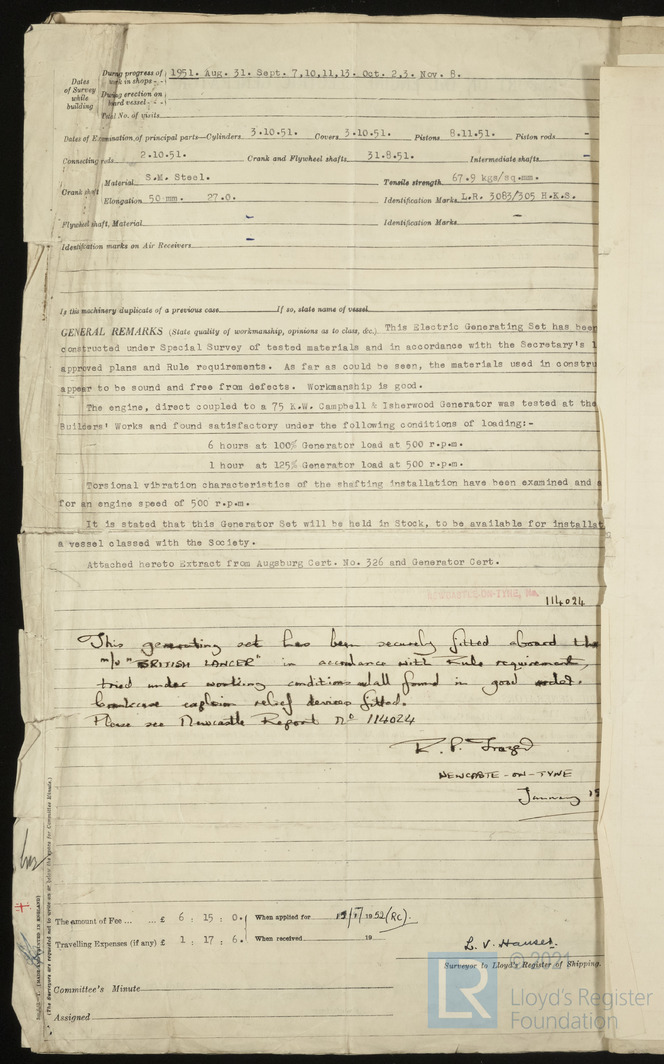 Dates of Survey while building
During progress of work in shops - - 1951. Aug. 31. Sept. 7,10,11,13. Oct. 2,3. Nov. 8.
During erection on board vessel - - -
Total No. of visits
Dates of Examination of principal parts—Cylinders 3.10.51. Covers 3.10.51. Pistons 8.11.51. Piston rods -
Connecting rods 2.10.51. Crank and Flywheel shafts 31.8.51. Intermediate shafts -
Crank shaft Material S.M. Steel. Tensile strength 67.9 kgs/sq.mm.
Elongation 50 mm. 27.0. Identification Marks L.R. 3083/305 H.K.S.
Flywheel shaft, Material - Identification Marks -
Identification marks on Air Receivers -
Is this machinery duplicate of a previous case If so, state name of vessel
GENERAL REMARKS (State quality of workmanship, opinions as to class, &c.) This Electric Generating Set has been
constructed under Special Survey of tested materials and in accordance with the Secretary's l
approved plans and Rule requirements. As far as could be seen, the materials used in constru
appear to be sound and free from defects. Workmanship is good.
The engine, direct coupled to a 75 K.W. Campbell & Isherwood Generator was tested at the
Builders' Works and found satisfactory under the following conditions of loading:-
6 hours at 100% Generator load at 500 r.p.m.
1 hour at 125% Generator load at 500 r.p.m.
Torsional vibration characteristics of the shafting installation have been examined and a
for an engine speed of 500 r.p.m.
It is stated that this Generator Set will be held in Stock, to be available for installat
a vessel classed with the Society.
Attached hereto Extract from Augsburg Cert. No. 326 and Generator Cert.
NEWCASTLE-ON-TYNE, No. 114024
This generating set has been securely fitted aboard the
m/v "BRITISH LANCER" in accordance with Rule requirements,
tried under working conditions and all found in good order.
Crankcase explosion relief devices fitted.
Please see Newcastle Report No 114024
R. P. Frazer
NEWCASTE-ON-TYNE
January 19
The amount of Fee ... ... £ 6 : 15 : 0. When applied for 19 52 (RC).
Travelling Expenses (if any) £ 1 : 17 : 6. When received 19
L. V. Hauser.
Surveyor to Lloyd's Register of Shipping.
Committee's Minute
Assigned
(MADE AND PRINTED IN ENGLAND)
(The Surveyors are requested not to write on or below the space for Committee Minute.)
© 2021
LR
Lloyd's Register
Foundation